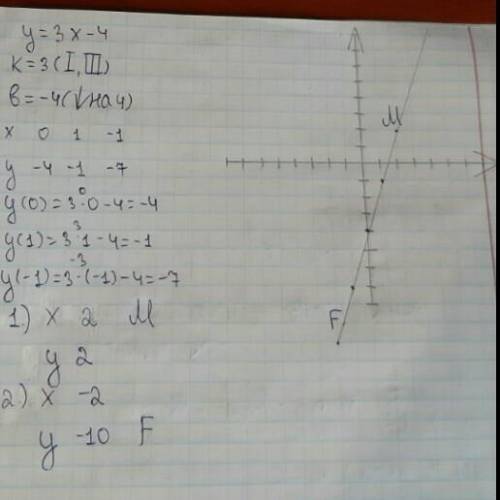 y=3x-4
K=3(I,III)
в=-4(↓на4)
x 0 1 -1
y -4 -1 -7
y(0)=3·0-4=-4
0
y(1)=3·1-4=-1
3
y(-1)=3·(-1)-4=-7
-3
1.) x 2 M
y 2
2.) x -2
y -10 F
M
F